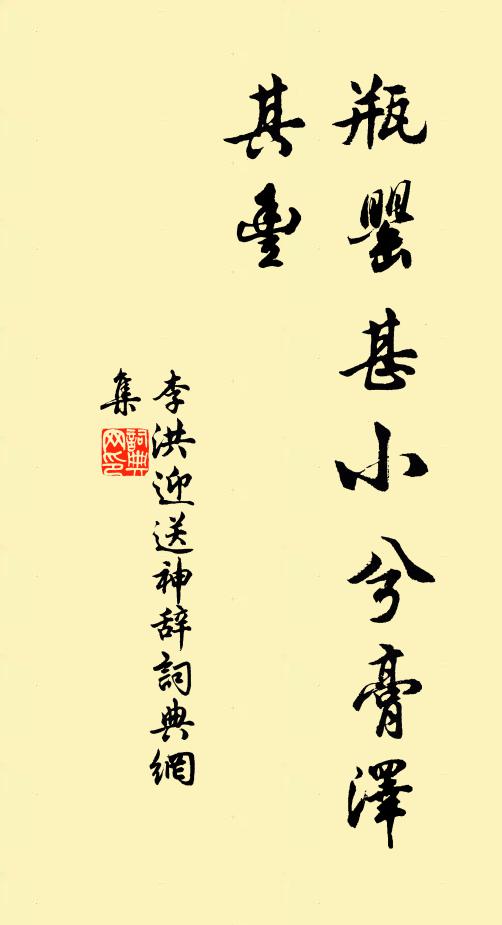 瓶罂甚小兮膏澤
其豐
李洪迎送神辞詞典網
集
詞典网印